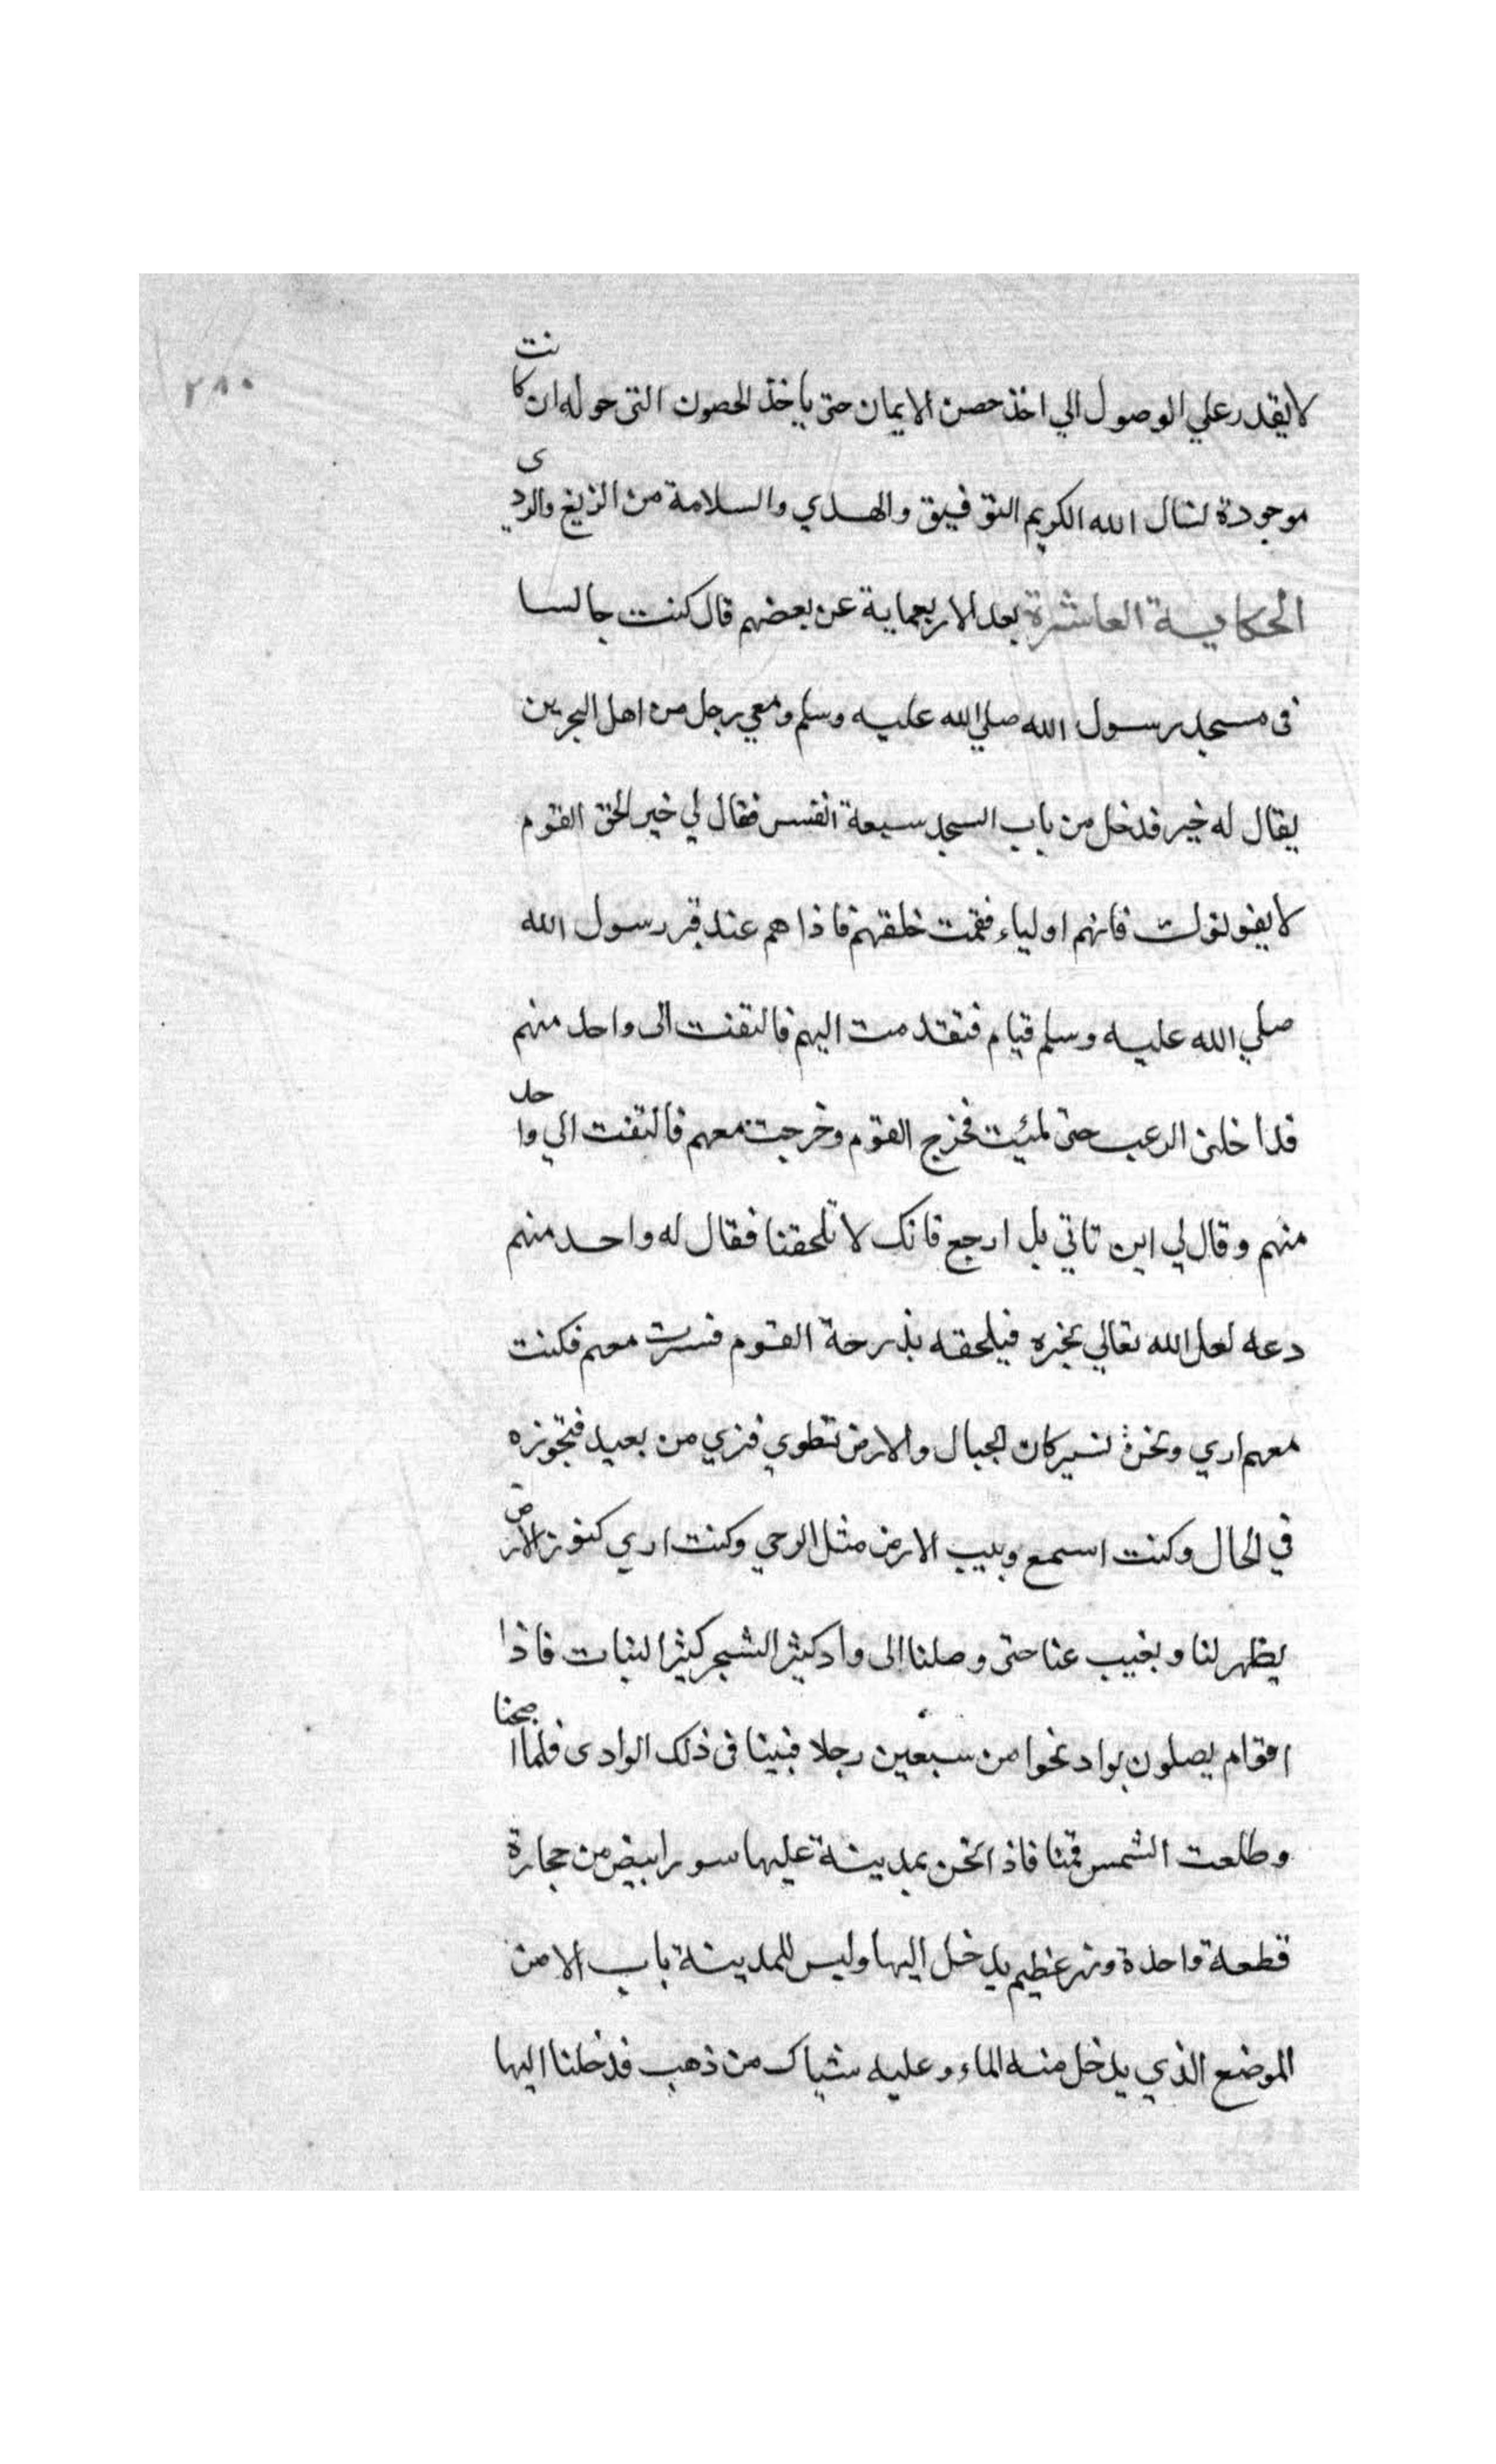 ٢٨٠
لا يقدر علي الوصول الي اخذ حصن الايمان حتى ياخذ الحصون التى حوله ان كانت
موجودة لنسال الله الكريم التوفيق والهدي والسلامة من الزيغ والردى
الحكاية العاشرة بعد الاربعماية عن بعضهم قال كنت جالسا
فى مسجد رسول الله صلي الله عليه وسلم ومعي رجل من اهل البحرين
يقال له خير فدخل من باب المسجد سبعة انفس فقال لي خير الحق القوم
لا يفوتونك فانهم اولياء فقمت خلفهم فاذا هم عند قبر رسول الله
صلي الله عليه وسلم قيام فتقدمت اليهم فالتفت الى واحد منهم
فداخلنى الرعب حتى فخرج القوم وخرجت معهم فالتفت الي واحد
منهم وقال لي اين تاتي بل ارجع فانك لا تلحقنا فقال له واحد منهم
دعه لعل الله تعالي يجبره فيلحقه بدرجة القوم فسرت معهم فكنت
معهم اري ونحن نسير كان الجبال والارض تنطوي فنري من بعيد فنجوزه
في الحال وكنت اسمع وبيب الارض مثل الرحي وكنت اري كنوز الارض
يظهر لنا ويغيب عنا حتى وصلنا الى واد كثير الشجر كثير النبات فاذا
اقوام يصلون بواد نحوا من سبعين رجلا فبتنا فى ذلك الوادى فلما اصبحنا
وطلعت الشمس قمنا فاذا نحن بمدينة عليها سور ابيض من حجارة
قطعة واحدة ونهر عظيم يدخل اليها وليس للمدينة باب الا من
الموضع الذي يدخل منه الماء وعليه شباك من ذهب فدخلنا اليها